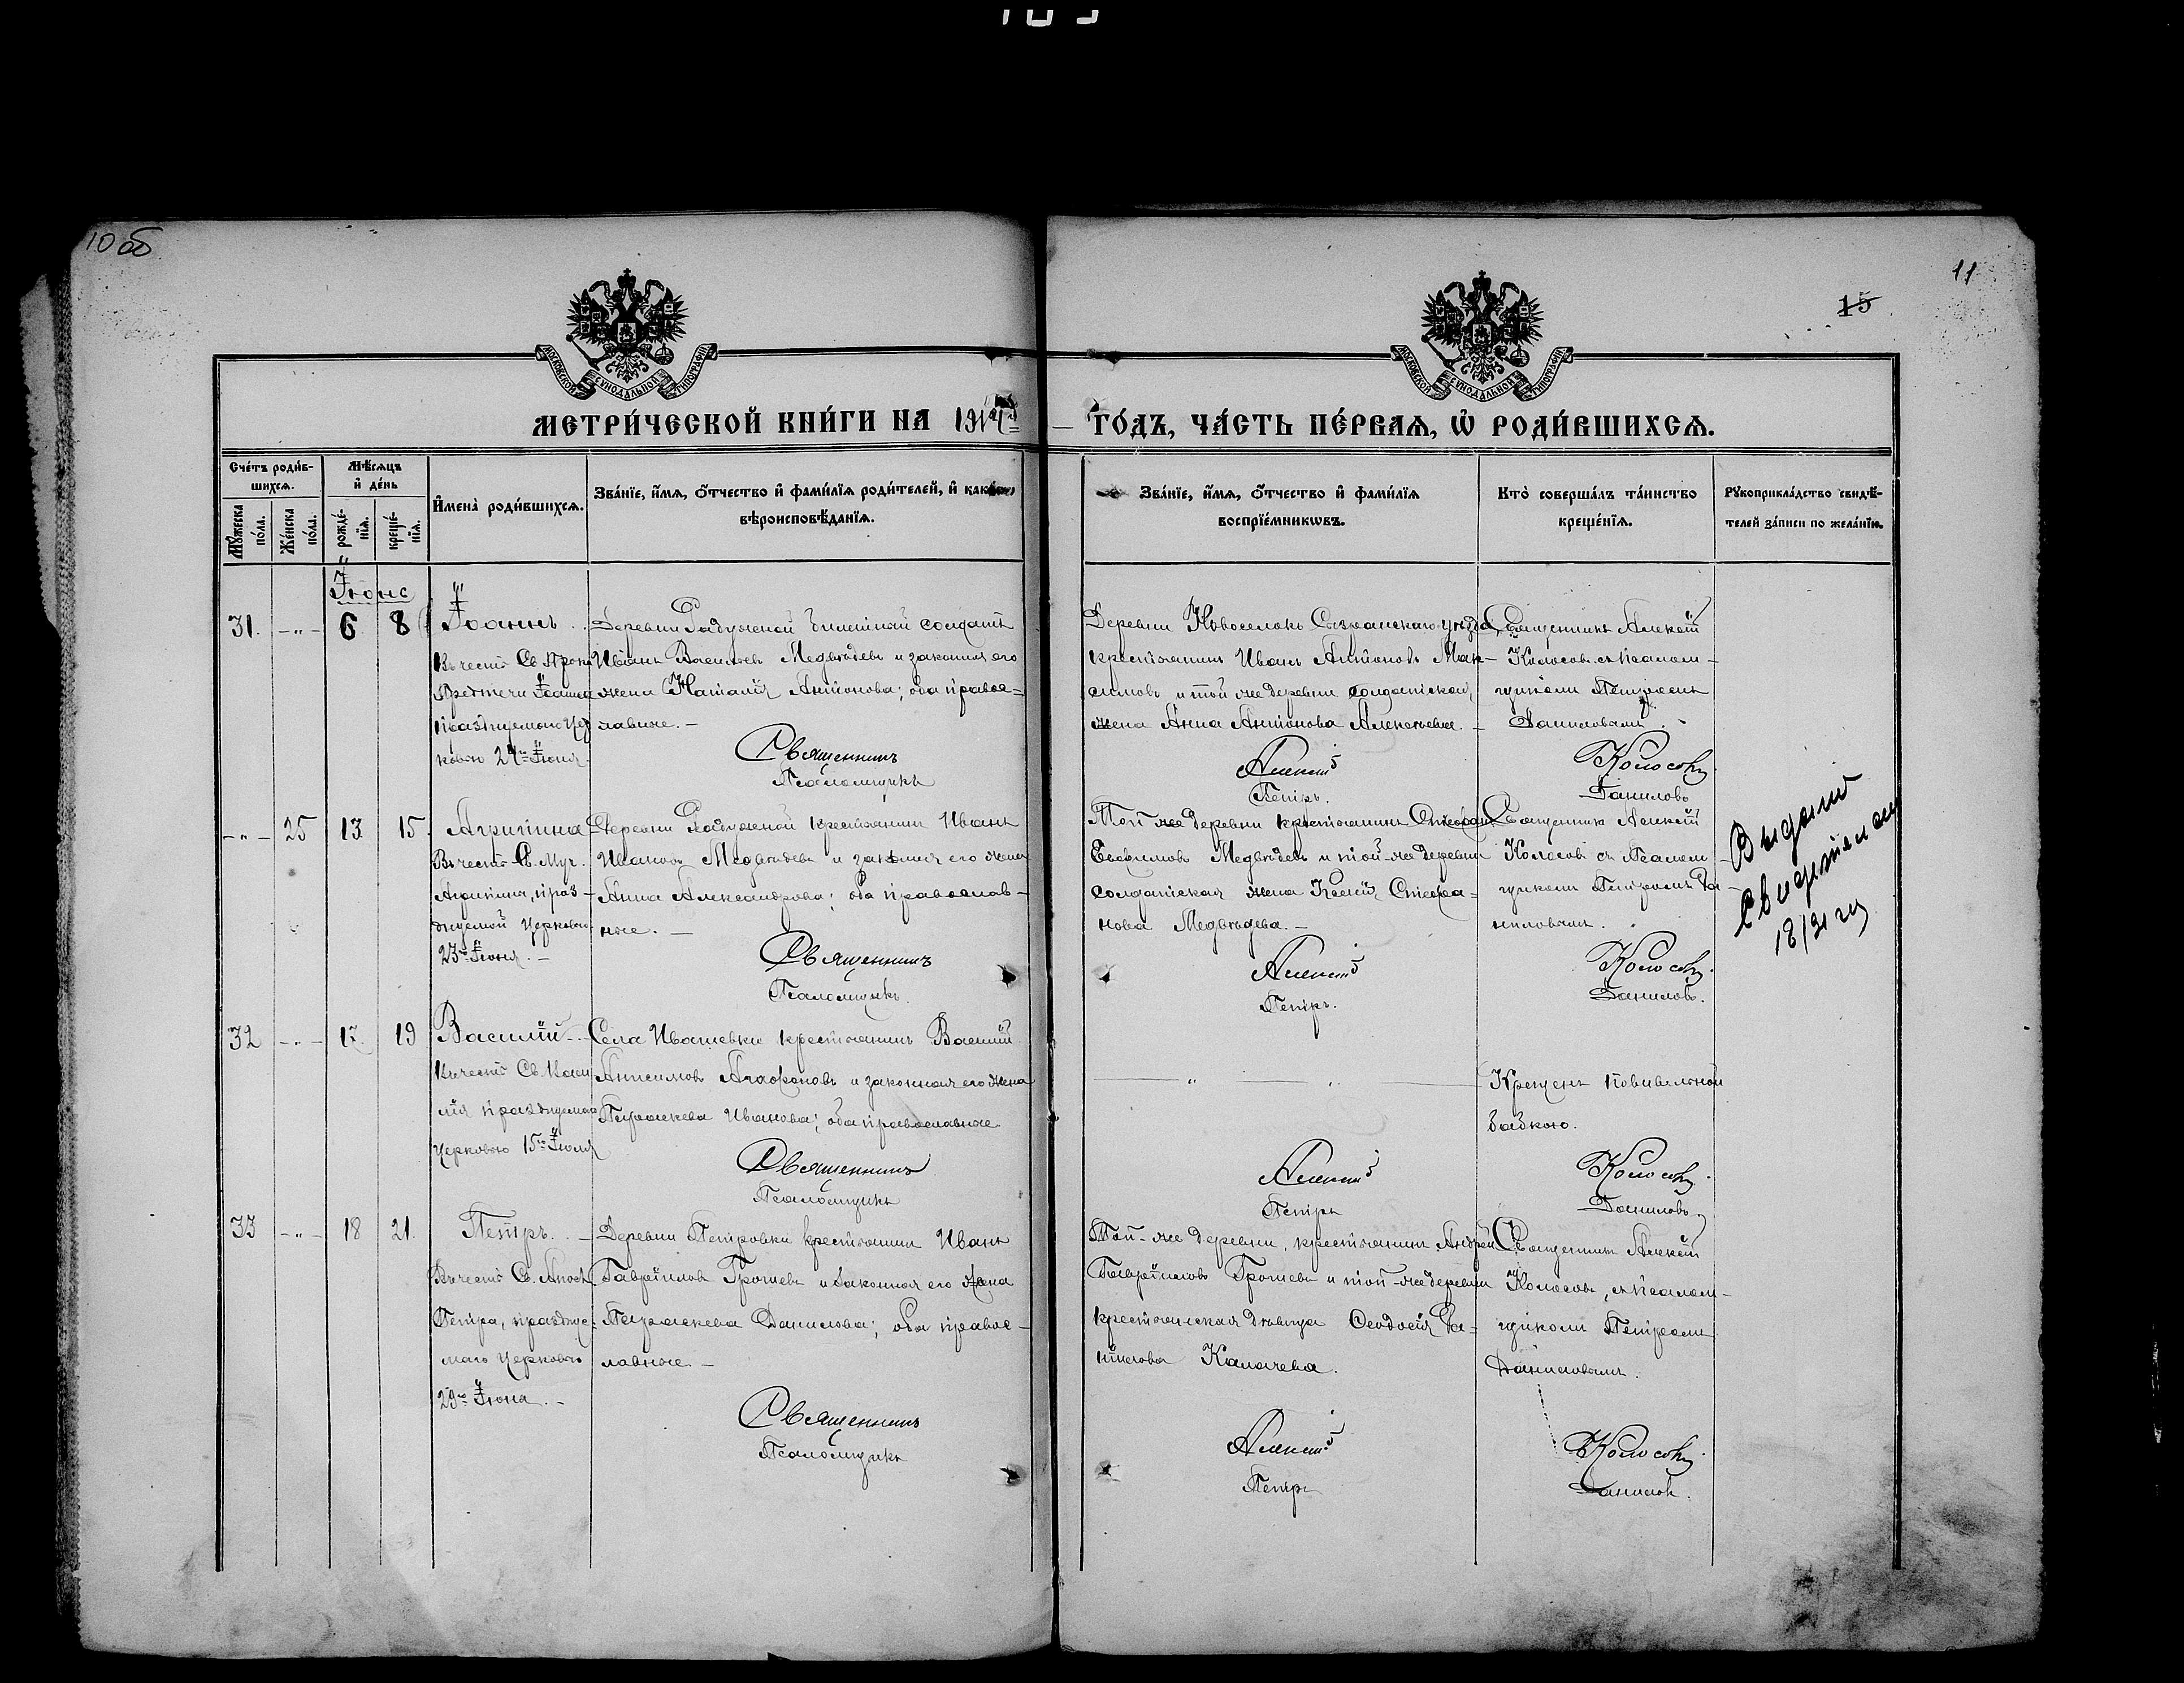 10 об
11
15
МОСКОВСКОЙ СѴНОДАЛЬНОЙ ТИПОГРАФІИ
МОСКОВСКОЙ СѴНОДАЛЬНОЙ ТИПОГРАФІИ
МЕТРИ́ЧЕСКОЙ КНИ́ГИ НА 1914 го́дъ, ча́сть пе́рваѧ, ѽ роди́вшихсѧ.
Сче́тъ роди́в-
шихсѧ.
Мꙋ́жеска по́ла.
Же́нска по́ла.
Мѣ́сѧцъ
и҆ де́нь
рожде́-
нїѧ.
креще́-
нїѧ.
И҆мена̀ роди́вшихсѧ.
Зва́нїе, и҆́мѧ, ѻ҆́тчество и҆ фами́лїѧ роди́телей, и҆
вѣроисповѣ́данїѧ.
Зва́нїе, и҆́мѧ, ѻ҆́тчество и҆ фами́лїѧ
воспрїе́мникѡвъ.
Кто̀ соверша́лъ та́инство
креще́нїѧ.
Рꙋкоприкла́дство свидѣ́-
телей за́писи по жела́нїю.
Іюнь
31. - " - 6 8
Іоаннъ
въ честь Св. Прор.
Предтечи Іоанна
празднуемаго Цер
ковію 24го Іюня.
Деревни Радужной билетный солдатъ
Иванъ Васильевъ Медвѣдевъ и законная его
жена Наталія Антонова; оба правос=
лавные. -
Священникъ
Псаломщикъ
Деревни Новоселокъ Сызранскаго уѣзда,
крестьянинъ Иванъ Антоновъ Мак-
симовъ и той же деревни солдатская
жена Анна Антонова Алексѣева. -
Алексій
Петръ.
Священникъ Алексій
Колосовъ съ псалом-
щикомъ Петромъ
Даниловымъ.
Колосовъ
Даниловъ
- " - 25 13 15.
Агрипина
Въ честь Св. Муч.
Агрипины, праз-
днуемой Церковію
23го Іюня. -
Деревни Радужной крестьянинъ Иванъ
Ивановъ Медвѣдевъ и законная его жена
Анна Александрова; оба православ-
ные. -
Священникъ
Псаломщикъ.
Той же деревни крестьянинъ Стефанъ
Евфимовъ Медвѣдевъ и той-же деревни
солдатская жена Ксенія Стефа=
нова Медвѣдева. -
Алексій
Петръ.
Священникъ Алексій
Колосовъ съ Псалом
щикомъ Петромъ Да-
ниловымъ.
Колосовъ.
Даниловъ.
Выдано
18/31 г.
32 - " - 17. 19
Василій
Въ честь Св. Васи
лія празднуемаго
Церковію 15го Іюля
Села Ивашевки крестьянинъ Василій
Анисимовъ Агафоновъ и законная его жена
Параскева Иванова; оба православные.
Священникъ
Псаломщикъ
- " - " -
Алексій
Петръ
Крещенъ повивальной
бабкою.
Колосовъ.
Даниловъ.
33 - " - 18 21.
Петръ.
Въ честь Св. Апост.
Петра, празднуе-
маго Церковію
29го Іюня. -
Деревни Петровки крестьянинъ Иванъ
Гавріиловъ Грошевъ и законная его жена
Параскева Данилова; оба правос-
лавные. -
Священникъ
Псаломщикъ
Той-же деревни, крестьянинъ Андрей
Гавріиловъ Грошевъ и той-же деревни
крестьянская дѣвица Ѳеодосія Да=
ніилова Калачева.
Алексій
Петръ
Священникъ Алексій
Колосовъ, съ псалом-
щикомъ Петромъ
Даниловымъ.
Колосовъ.
Даниловъ.